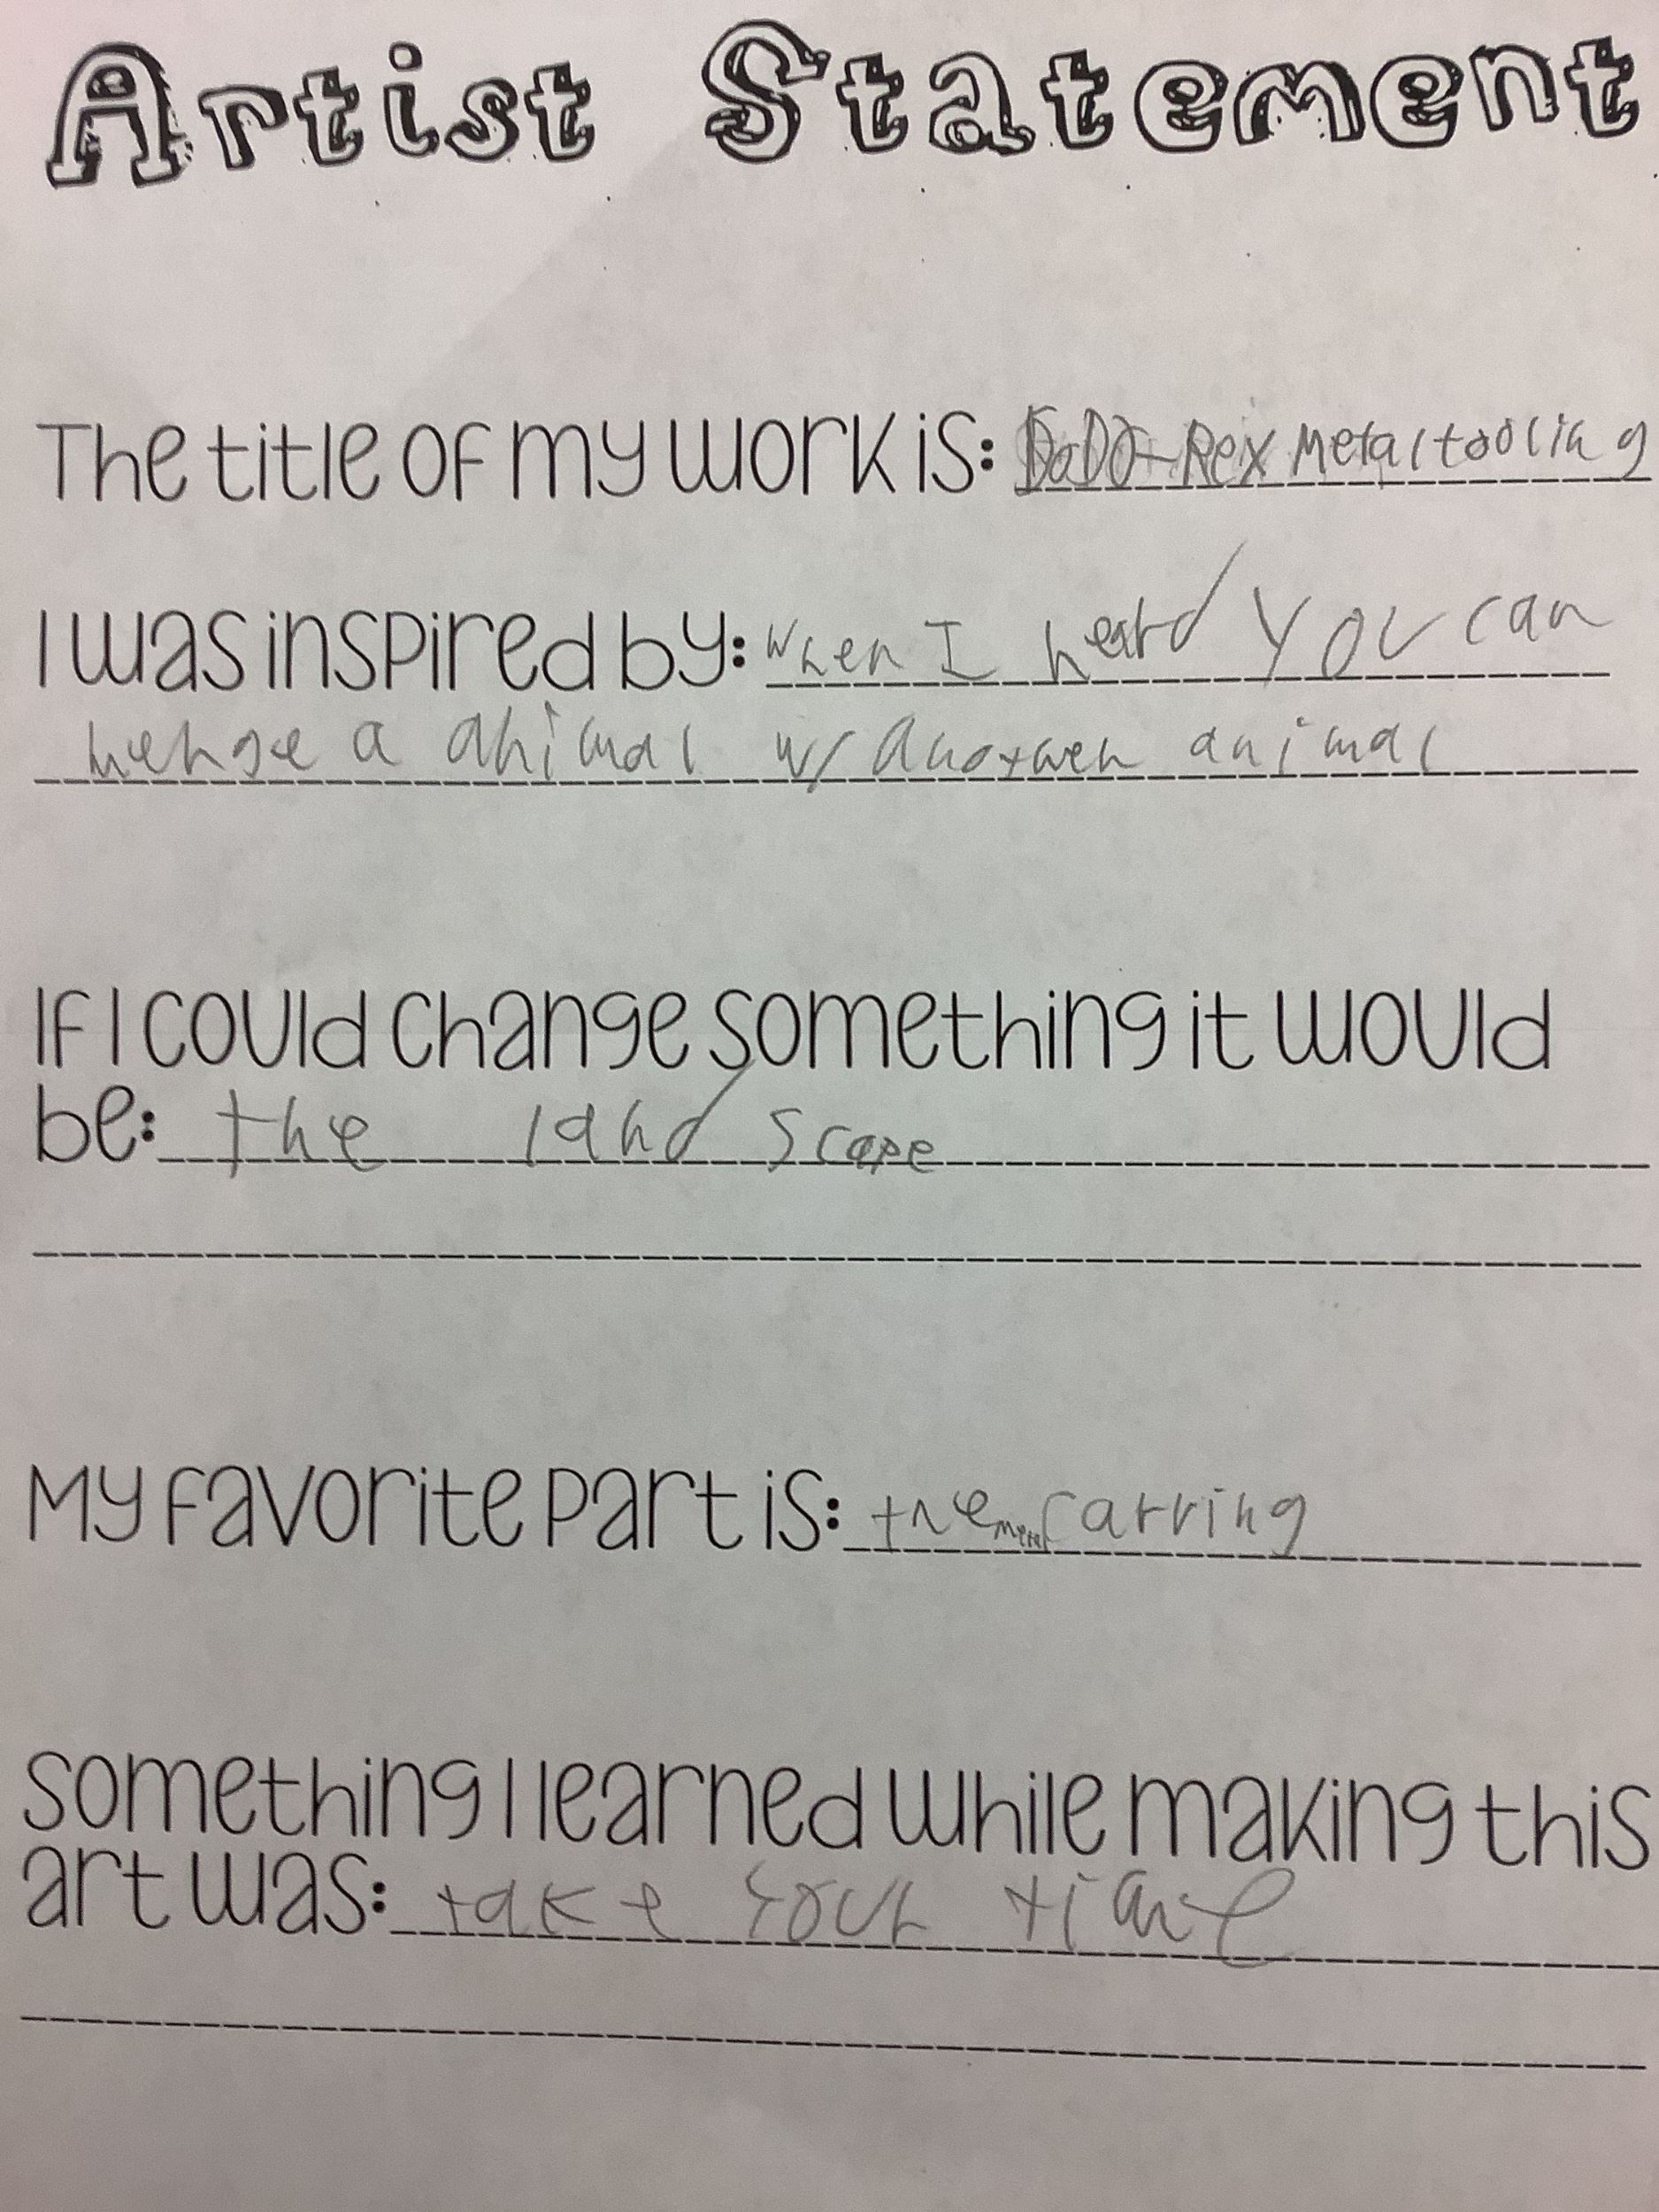 Artist Statement
The title of my work is: DoDo-Rex Metaltooling
I was inspired by: when I heard you can
merge a animal w/ another animal
If I could change something it would
be: the land scape
My favorite part is: the metal carving
Something I learned while making this
art was: take your time